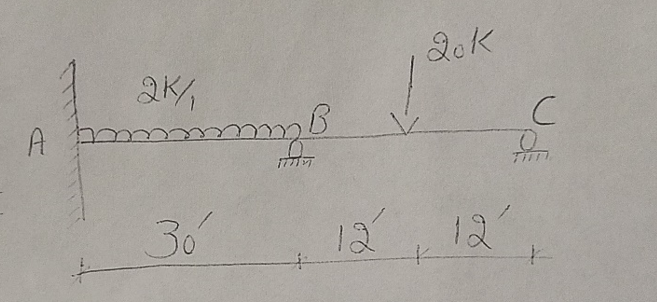 20K
2K/,
A
B
C
30'
12'
12'